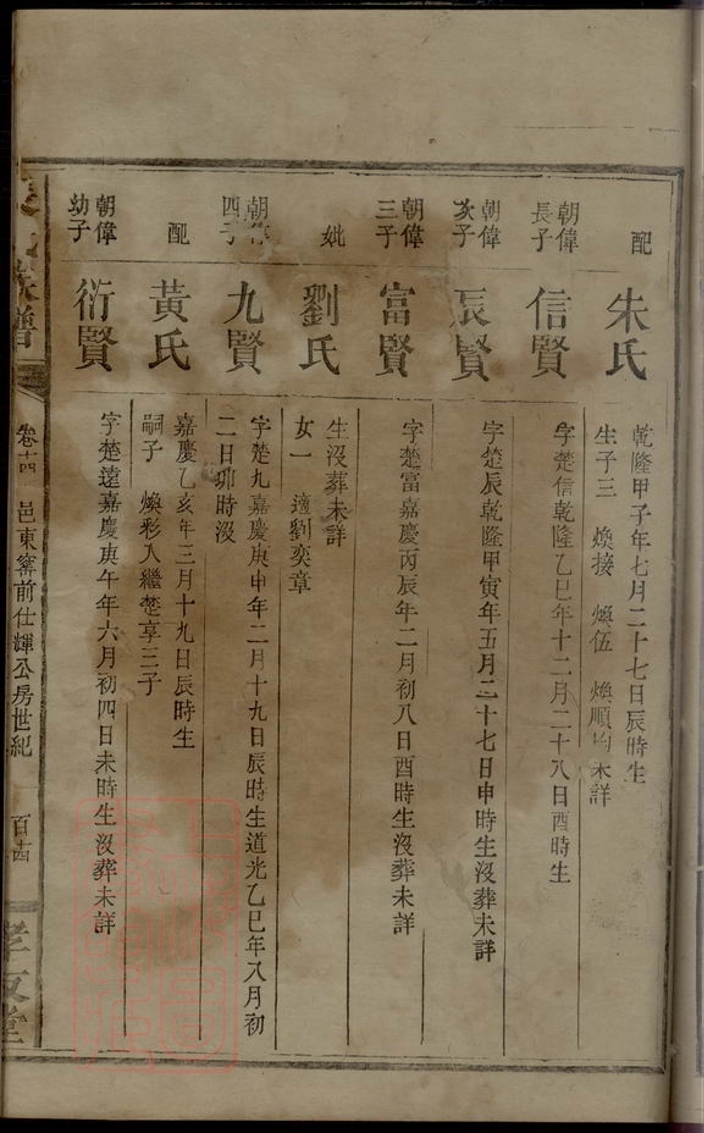 配
朱氏
乾隆甲子年七月二十七日辰時生
生子三 煥接 煥伍 煥順均未詳
朝偉
長子
信賢
字楚信乾隆乙巳年十二月二十八日酉時生
朝偉
次子
辰賢
字楚辰乾隆甲寅年五月二十七日申時生沒葬未詳
朝偉
三子
富賢
字楚富嘉慶丙辰年二月初八日酉時生沒葬未詳
妣
劉氏
生沒葬未詳
女一 適劉奕章
朝偉
四子
九賢
字楚九嘉慶庚申年二月十九日辰時生道光乙巳年八月初
二日卯時沒
配
黃氏
嘉慶乙亥年三月十九日辰時生
嗣子 煥彩入繼楚享三子
朝偉
幼子
衍賢
字楚遠嘉慶庚午年六月初四日未時生沒葬未詳
族譜
卷十四
邑東窰前仕輝公房世紀
百十四
孝友堂